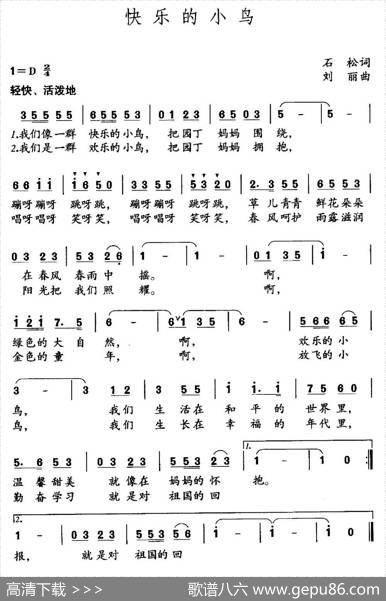 快乐的小鸟
1=D 2/4
石 松词
刘 丽曲
轻快、活泼地
3 5 5 5 5 | 6 5 5 5 3 | 0 1 2 3 | 6 5 2 3 | 5 - | 5 - |
1.我们像一群 快乐的小鸟, 把园丁 妈妈 围 绕,
2.我们是一群 欢乐的小鸟, 把园丁 妈妈 拥 抱,
6 6 i i | i 6 5 0 | 3 3 5 5 | 5 3 2 0 | 2. 3 5 5 | 6 6 5 3 |
蹦呀蹦呀 跳呀跳, 蹦呀蹦呀 跳呀跳, 草 儿青青 鲜花朵朵
唱呀唱呀 笑呀笑, 唱呀唱呀 笑呀笑, 春 风呵护 雨露滋润
0 3 2 3 | 5 3 2 6 | 1 - | 1 - | 0 1 3 5 | i - |
在春风 春雨中 摇。 啊,
阳光把 我们照 耀。 啊,
i 2 i 7. 5 | 6 - | 6 1 3 5 | i - | 5 6 6 6 5 |
绿色的大自 然, 啊, 欢乐的小
金色的童 年, 啊, 放飞的小
3 - | 3 - | 1 1 2 | 3 5 5 | i i. i | 7 5 6 0 |
鸟, 我们 生活在 和平的 世界里,
鸟, 我们 生长在 幸福的 年代里,
5. 6 5 3 | 0 3 2 3 | 5 5 5 2 3 | 1 - | 1 0 :|
温 馨甜美 就像在 妈妈的怀 抱。
勤 奋学习 就是对 祖国的回
1 - | 0 3 2 3 | 5 5 5 2 3 | 1 - | 1 - | 1 0 ‖
报, 就是对 祖国的回
高清下载 >>> 歌谱八六 www.gepu86.com